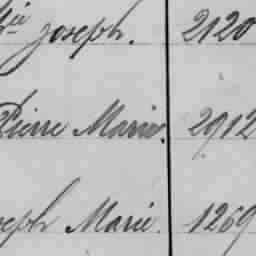 joseph. 2120
Pierre Marie. 2912
seph Marie. 1269